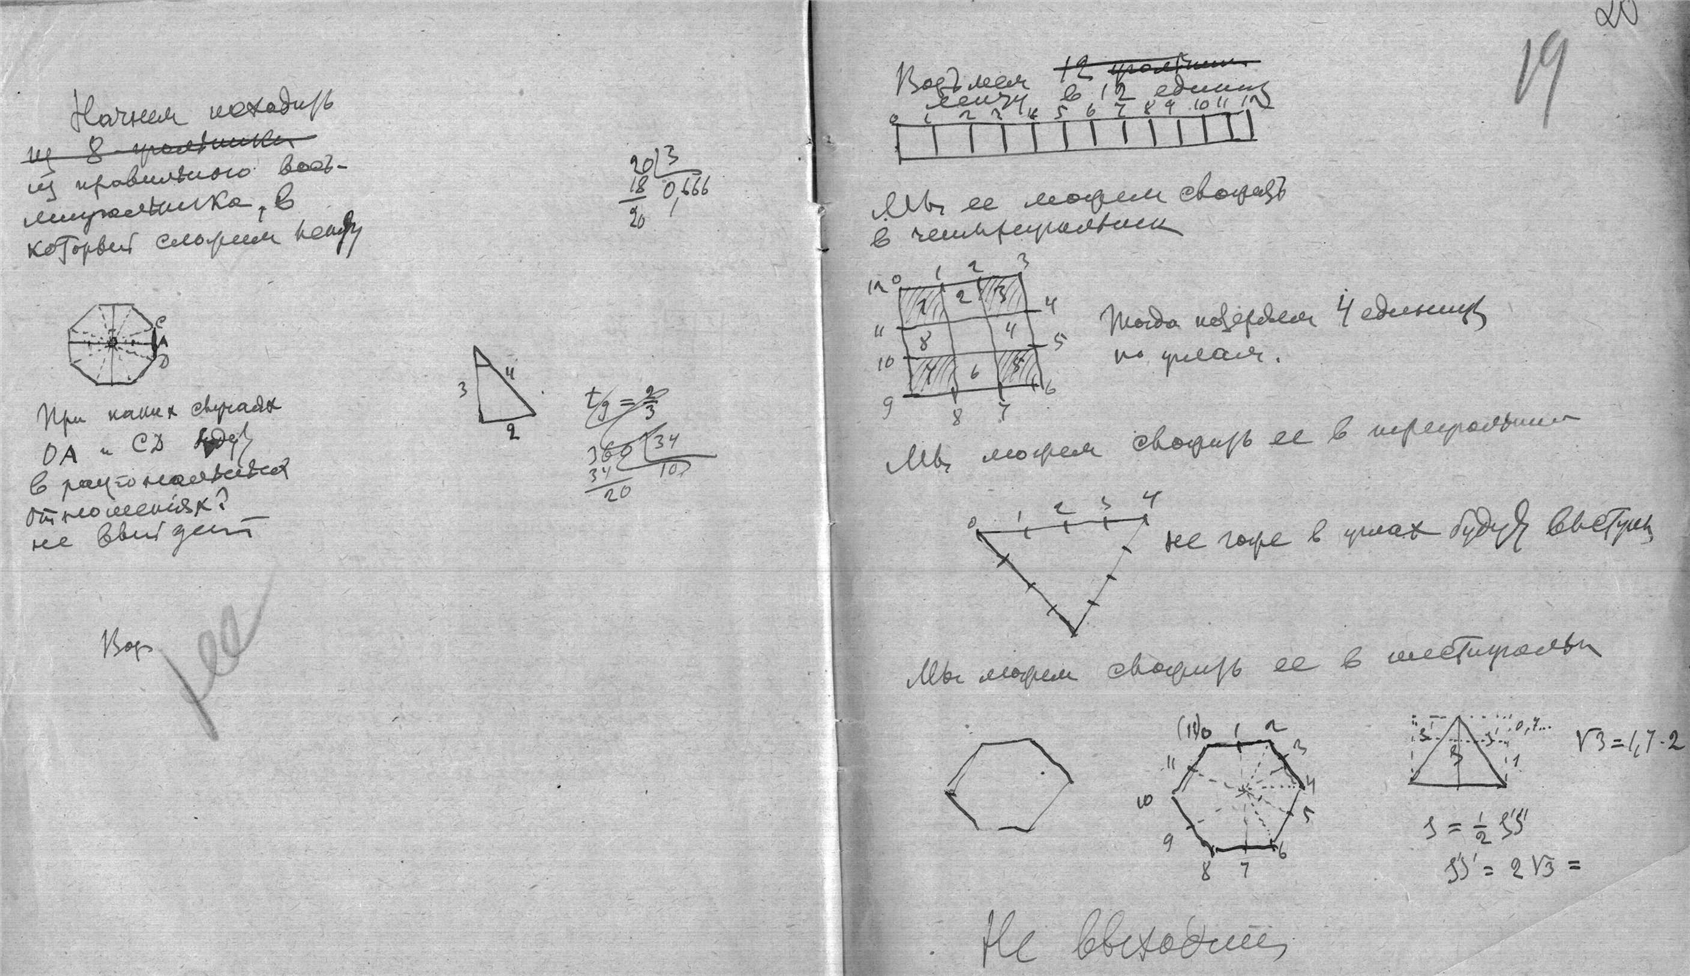 Начнем исходить
из 8-угольника
из правильного вось-
миугольника, в
который сложим ленту
20 3
18 0,666
20
C
A
D
3
4
2
tg = 2/3
360 34
34 10
20
При каких случаях
OA и CD будут
в рациональных
отношениях?
не выйдет
Воз
20
19
Возьмем 12 угольник
ленту в 12 единиц
0 1 2 3 4 5 6 7 8 9 10 11 12
Мы ее можем сводить
в четырехугольник
12 0 1 2 3
1 2 3 4
11 8 4 5
10 7 6 5 6
9 8 7
Тогда потеряем 4 единицы
по углам.
Мы можем сводить ее в треугольник
0 1 2 3 4
но тоже в углах будут выступы
Мы можем сводить ее в шестиугольн
(12) 0 1 2
11 3
10 4
9 5
8 7 6
0,7...
1
√3 = 1,7·2
S = 1/2 S'S'
S'S' = 2√3 =
Не выходит